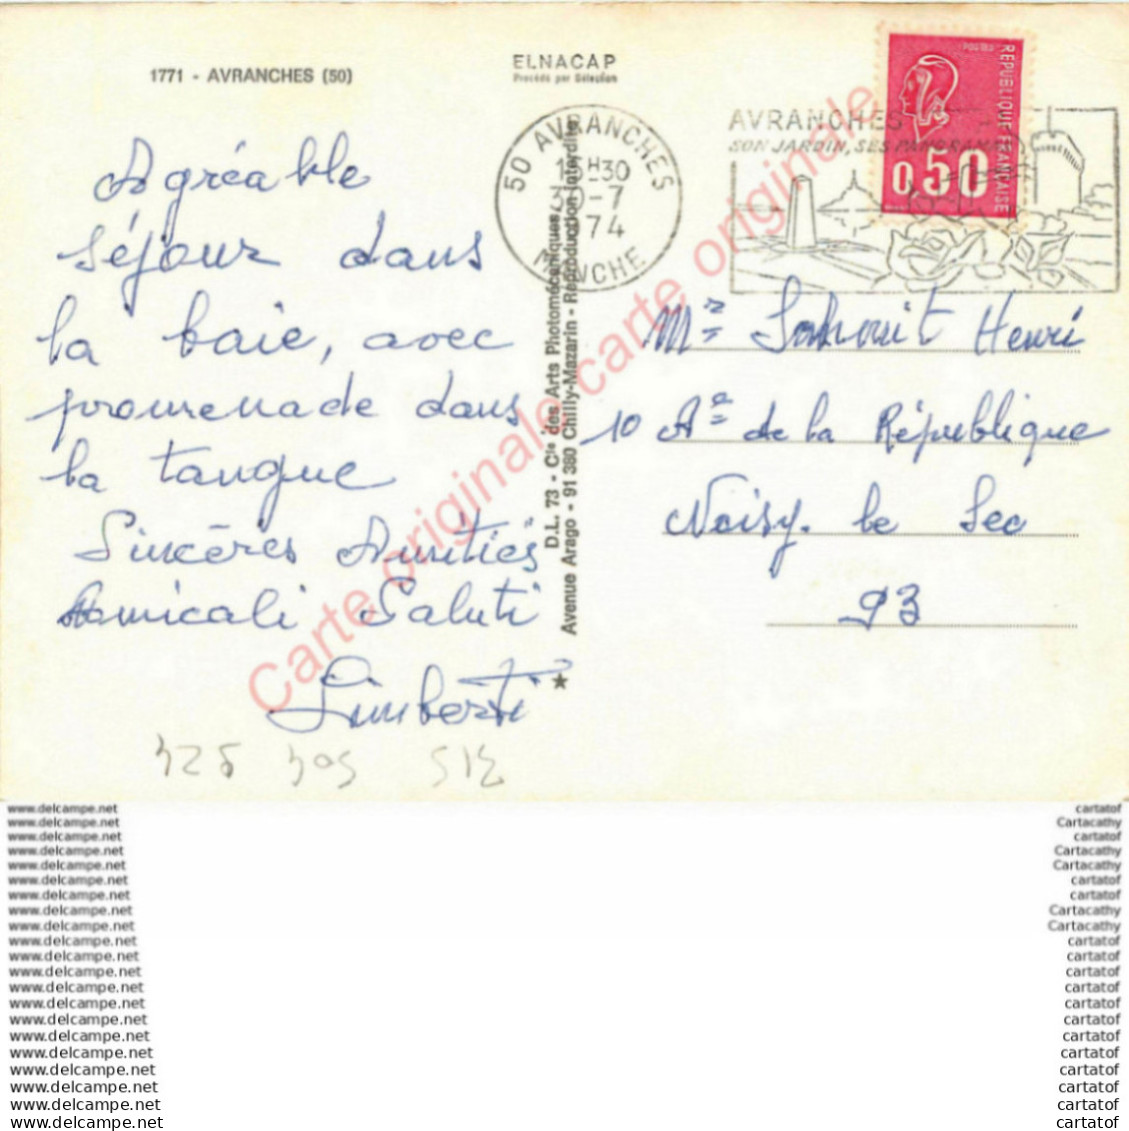 1771 - AVRANCHES (50)
ELNACAP
Procédé par Sélection
Agréable
séjour dans
la baie, avec
promenade dans
la tangue
Sincères Amitiés
Amicali Saluti
Limberti
50 AVRANCHES
30-7
1974
MANCHE
AVRANCHES
SON JARDIN, SES PANORAMAS
REPUBLIQUE FRANÇAISE
POSTES
0,50
D.L. 73 - Cie des Arts Photomécaniques
Avenue Arago - 91 380 Chilly-Mazarin - Reproduction interdite
Mr Henri
10 Ae de la République
Noisy. le Sec
93
Carte originale carte originale
www.delcampe.net cartatof
www.delcampe.net Cartacathy
www.delcampe.net cartatof
www.delcampe.net Cartacathy
www.delcampe.net Cartacathy
www.delcampe.net cartatof
www.delcampe.net cartatof
www.delcampe.net Cartacathy
www.delcampe.net Cartacathy
www.delcampe.net cartatof
www.delcampe.net cartatof
www.delcampe.net cartatof
www.delcampe.net cartatof
www.delcampe.net cartatof
www.delcampe.net cartatof
www.delcampe.net cartatof
www.delcampe.net cartatof
www.delcampe.net cartatof
www.delcampe.net cartatof
www.delcampe.net cartatof
www.delcampe.net cartatof